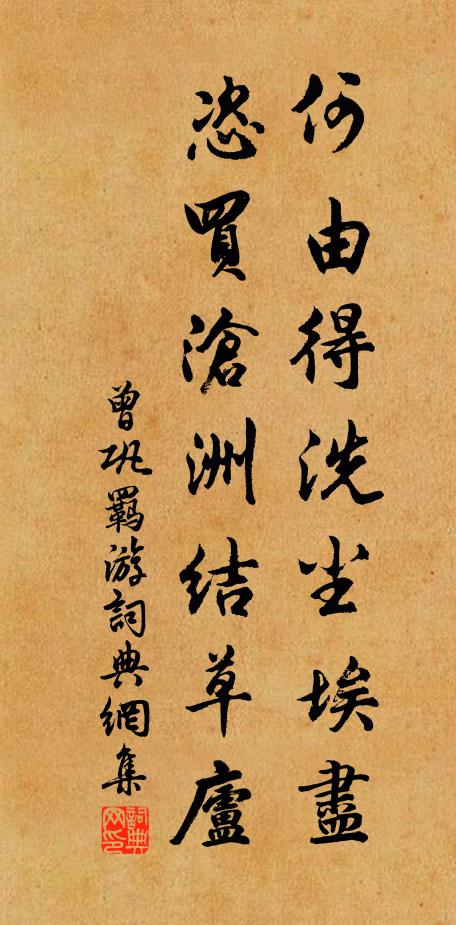 何由得洗尘埃盡
恣買滄洲結草廬
曾巩羁游詞典網集
詞典网印